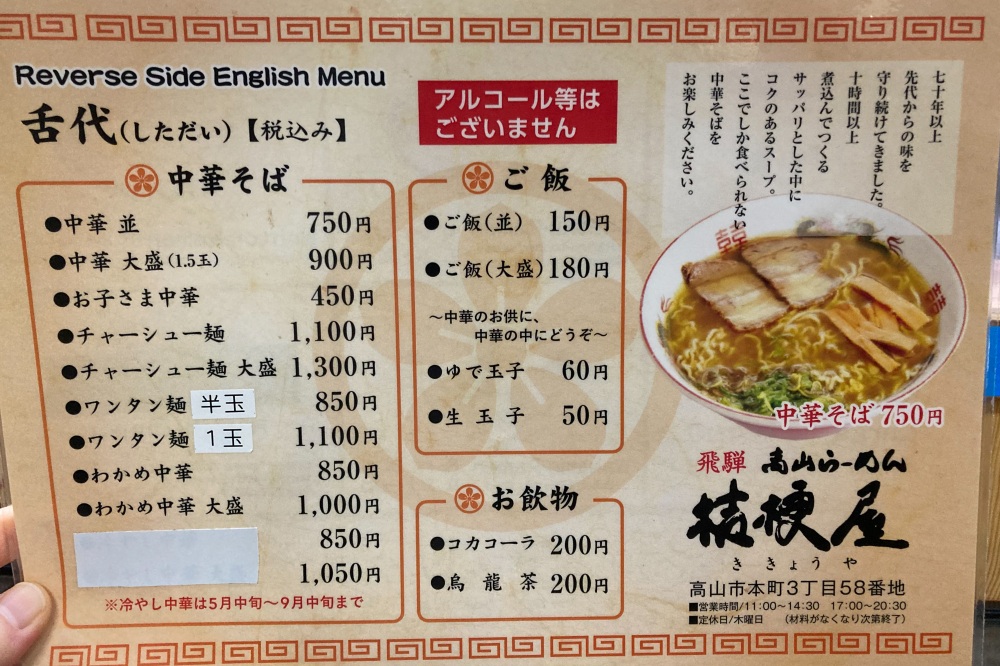 Reverse Side English Menu
舌代(しただい)【税込み】
アルコール等は
ございません
中華そば
●中華 並 750円
●中華 大盛(1.5玉) 900円
●お子さま中華 450円
●チャーシュー麺 1,100円
●チャーシュー麺 大盛 1,300円
●ワンタン麺 半玉 850円
●ワンタン麺 1玉 1,100円
●わかめ中華 850円
●わかめ中華 大盛 1,000円
850円
1,050円
※冷やし中華は5月中旬〜9月中旬まで
ご飯
●ご飯(並) 150円
●ご飯(大盛) 180円
〜中華のお供に、
中華の中にどうぞ〜
●ゆで玉子 60円
●生玉子 50円
お飲物
●コカコーラ 200円
●烏龍茶 200円
七十年以上
先代からの味を
守り続けてきました。
十時間以上
煮込んでつくる
サッパリとした中に
コクのあるスープ。
ここでしか食べられない
中華そばを
お楽しみください。
囍
中華そば 750円
飛騨 高山らーめん
桔梗屋
ききょうや
高山市本町3丁目58番地
■営業時間/11:00〜14:30 17:00〜20:30
■定休日/木曜日 (材料がなくなり次第終了)